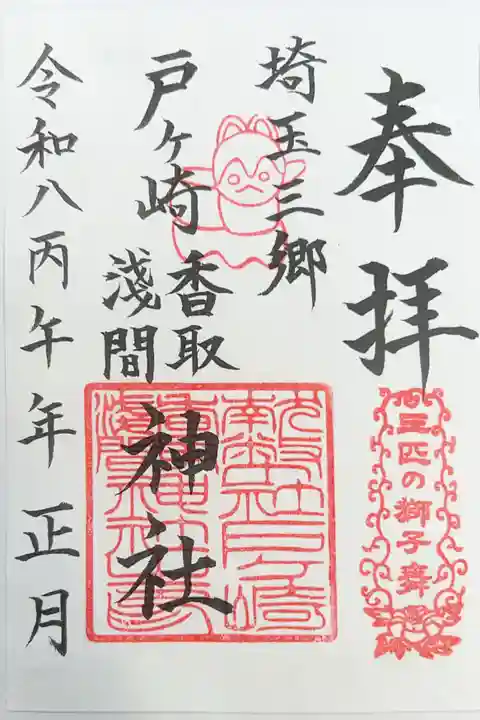 奉拝
三匹の獅子舞
埼玉三郷
戸ヶ崎
香取
浅間
神社
令和八丙午年正月